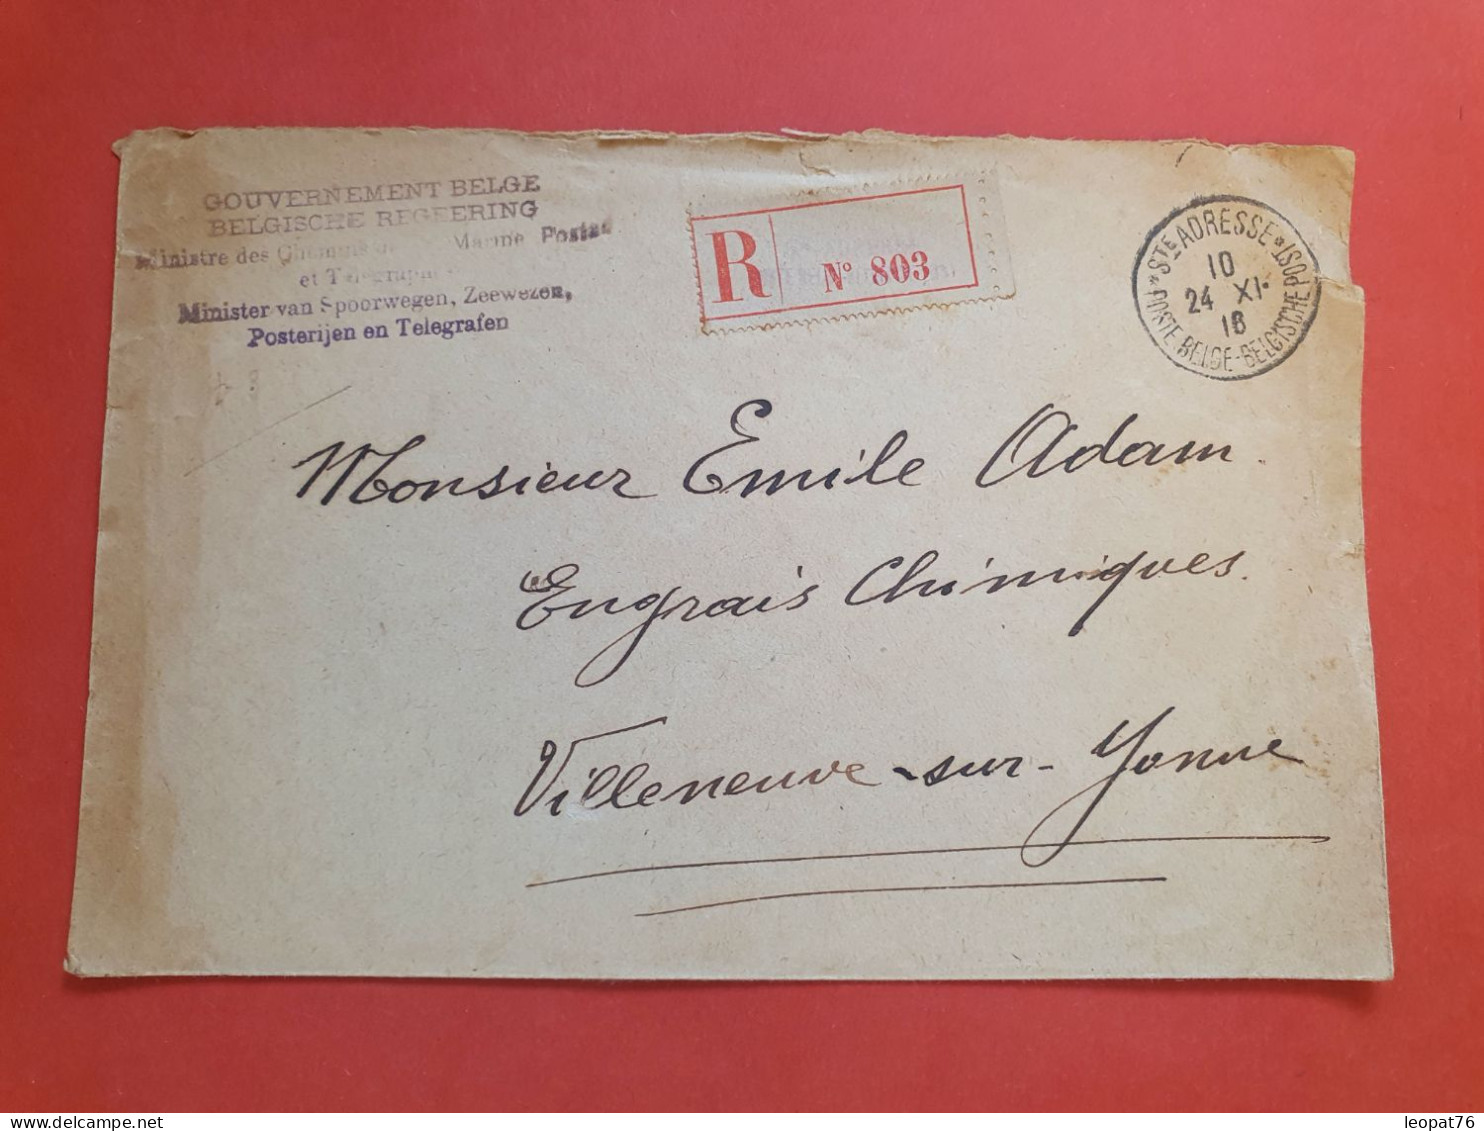 GOUVERNEMENT BELGE
BELGISCHE REGEERING
Ministre des Chemins Marine, Postes
et Telegraphes
Minister van Spoorwegen, Zeewezen,
Posterijen en Telegrafen
R
N° 803
*STE ADRESSE*
10
24 XI
16
POSTE BELGE-BELGISCHE POST
Monsieur Emile Adam.
Engrais Chimiques.
Villeneuve-sur-Yonne
leopat76